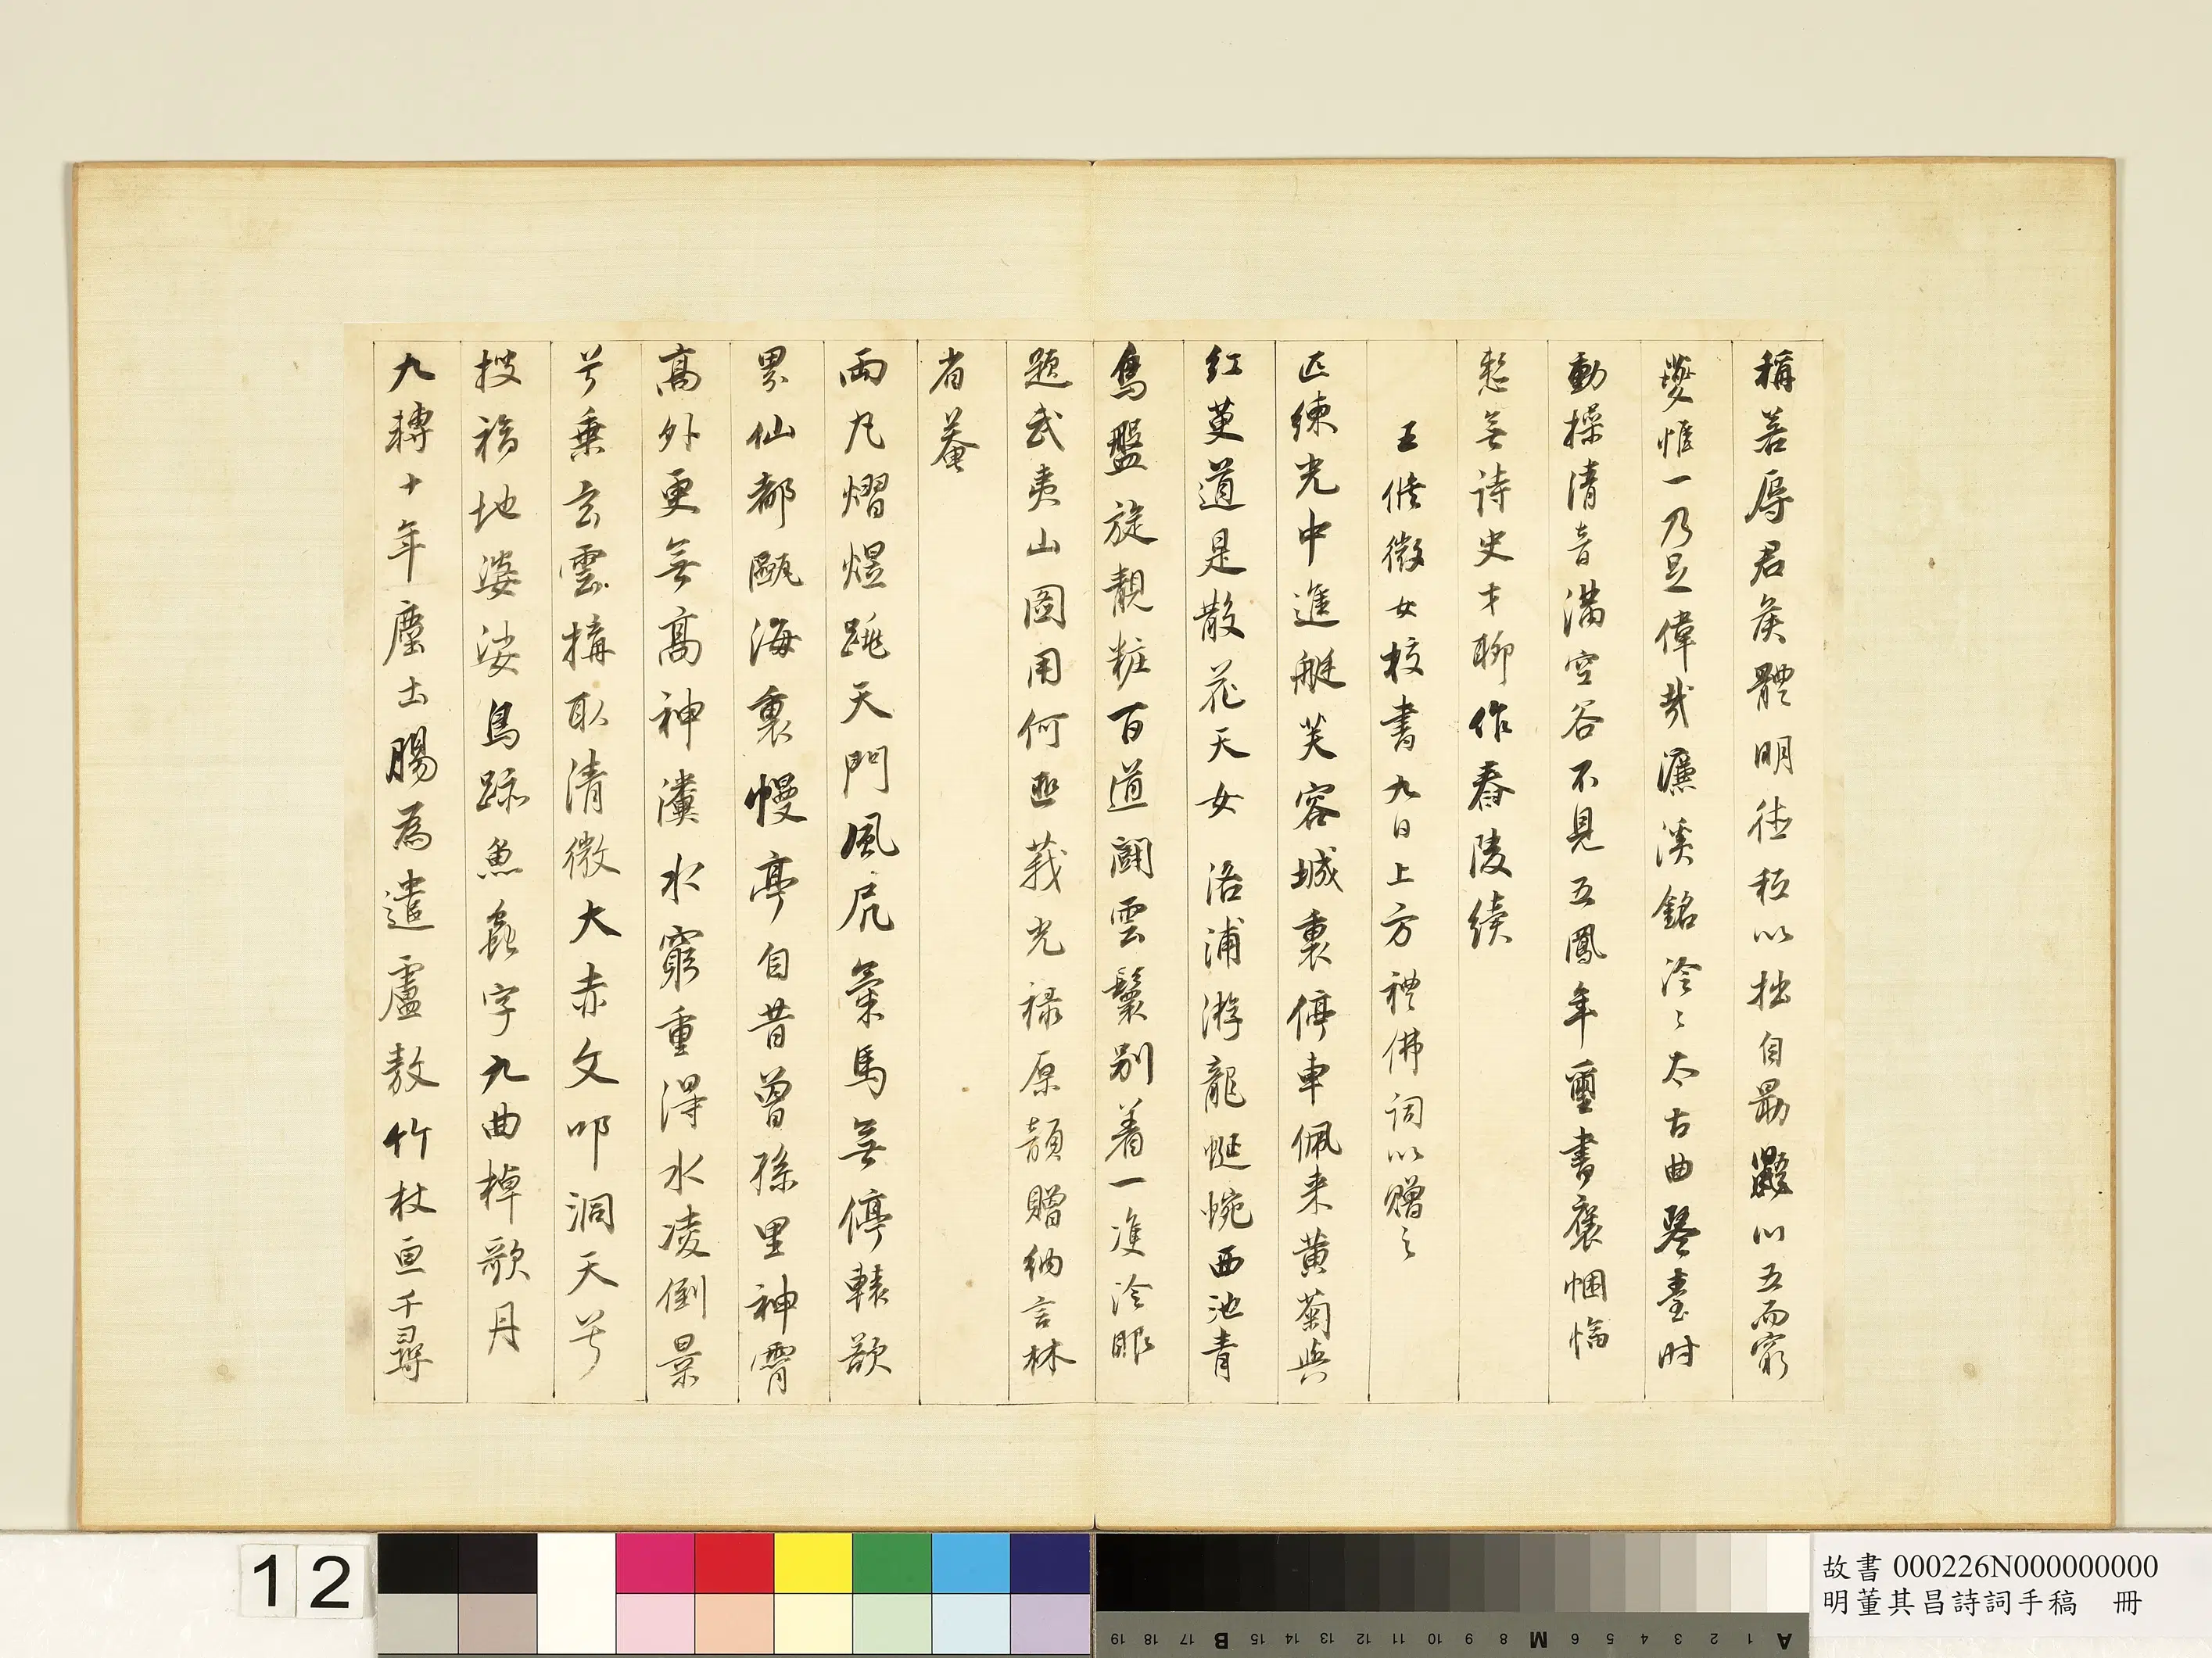 稱善辱君矦體明德秉以拙自勗鼷以五而窮
夔惟一乃足偉哉濂溪銘泠〻太古曲琴臺時
動操清音滿空谷不見五鳳年璽書褒悃愊
愁無詩史才聊作舂陵續
王修微女校書九日上方禮佛詞以贈之
匹練光中進艇芙容城裏停車佩来黃菊與
紅萸道是散花天女 洛浦游龍蜒蜿西池青
鳥盤旋靚粧百道鬭雲鬟別着一隻泠眼
題武夷山圖用何匪莪光禄原韻贈納言林
省菴
兩丸熠煜跳天門風虎氣馬無停轅歘
累仙都甌海裏幔亭自昔曾孫里神霄
高外更無高神瀵水窮重得水凌倒景
兮乗玄雲搆取清微大赤文叩洞天兮
搜福地婆娑鳥跡魚蟲字九曲棹歌月
九轉十年塵土腸為遣盧敖竹杖亘千尋
12
故書 000226N000000000
明董其昌詩詞手稿 冊
A 1 2 3 4 5 6 M 8 9 10 11 12 13 14 15 B 17 18 19